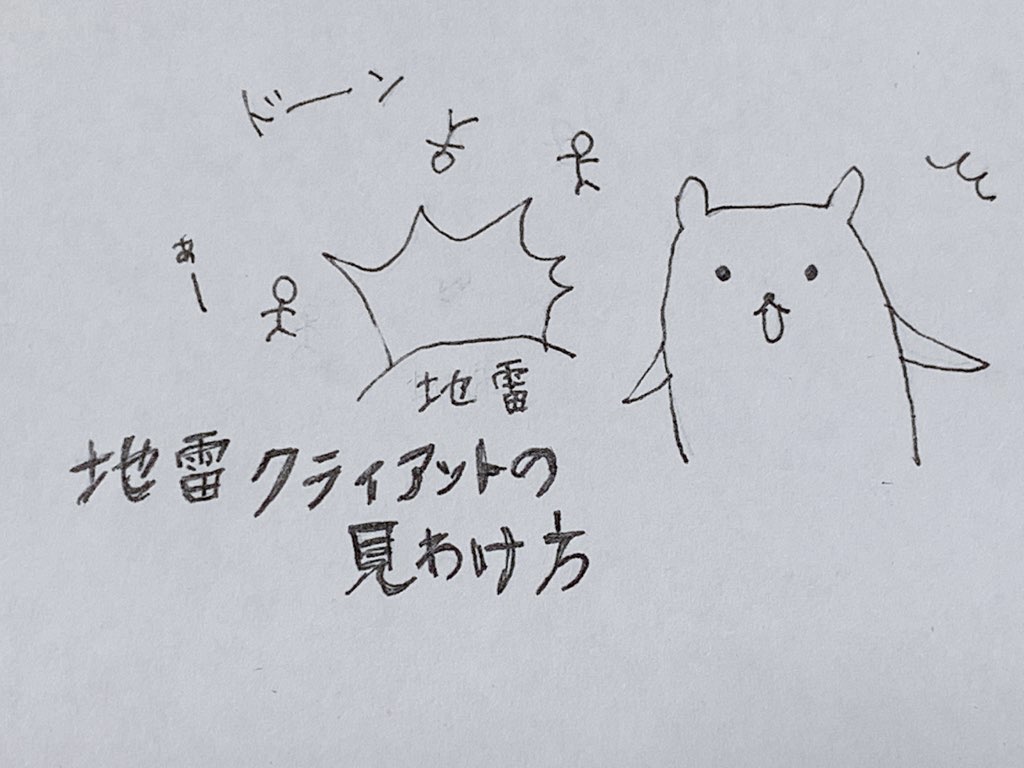 ドーン
あー
地雷
地雷クライアントの
見わけ方